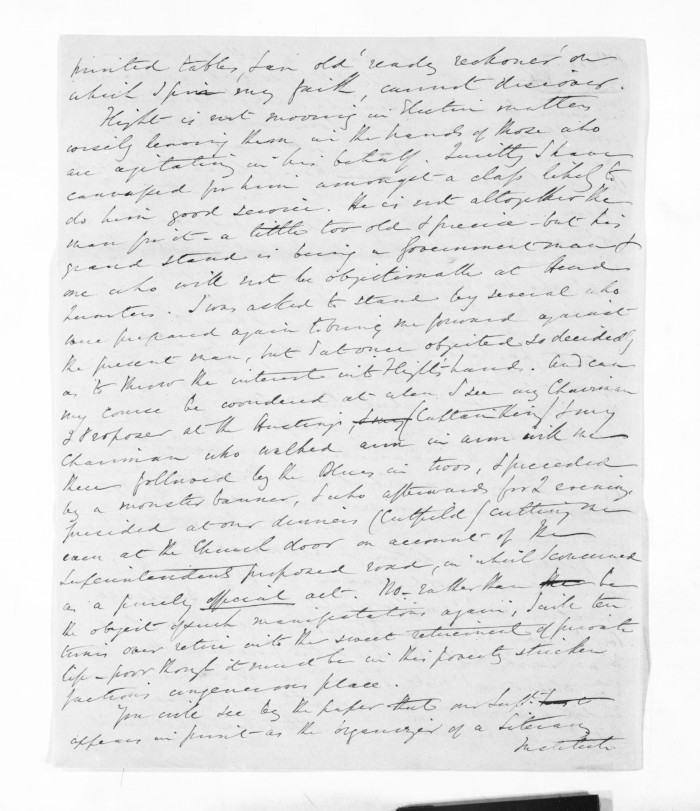 printed tables, & an old 'ready reckoner' on
which I pin my faith, cannot discover.
Flight is not moving in Election matters
wisely leaving them in the hands of those who
are agitating in his behalf. Quietly I have
canvassed for him amongst a class likely to
do him good service. He is not altogether the
man for it - a little too old & precise - but his
grand stand is being a Government man &
one who will not be objectionable at Head
Quarters. I was asked to stand by several who
were prepared again to bring me forward against
the present man, but I at once objected so decidedly
as to throw the interest into Flight's hands. And can
my course be wondered at when I see my Chairman
& Proposer at the Hustings, & my (Captain King) & my
Chairman who walked arm in arm with me
there followed by the Blues in twos, & preceded
by a monster banner, & who afterwards for 2 evenings
presided at our dinners (Cutfield) cutting me
even at the Church door on account of the
Superintendent's proposed road, in which I concurred
as a purely official act. No - rather than the be
the object of such manifestations again, I will ten
times over retire into the sweet retirement of private
life - poor though it must be in this poverty stricken
factious ungenerous place.
You will see by the paper that our Supt.
appears in print as the organizer of a Literary
Institute